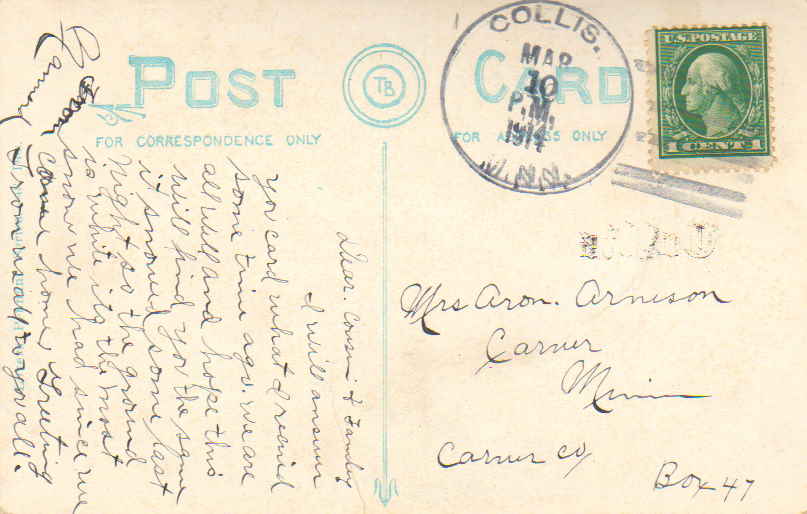 POST CARD
FOR CORRESPONDENCE ONLY
FOR ADDRESS ONLY
TB
COLLIS.
MAR
10
P.M.
1914
MINN.
U.S. POSTAGE
1 CENT 1
Mrs Aron. Arneson
Carver
Minn
Carver Co,
Box 47
Dear. Cousin & Family
I will answer
you card what I recived
some time ago. we are
all well and hope this
will find you the same
it snowed some last
night so the ground
is white its the most
snow we had since we
came home, Greeting
from us all to you all.
from